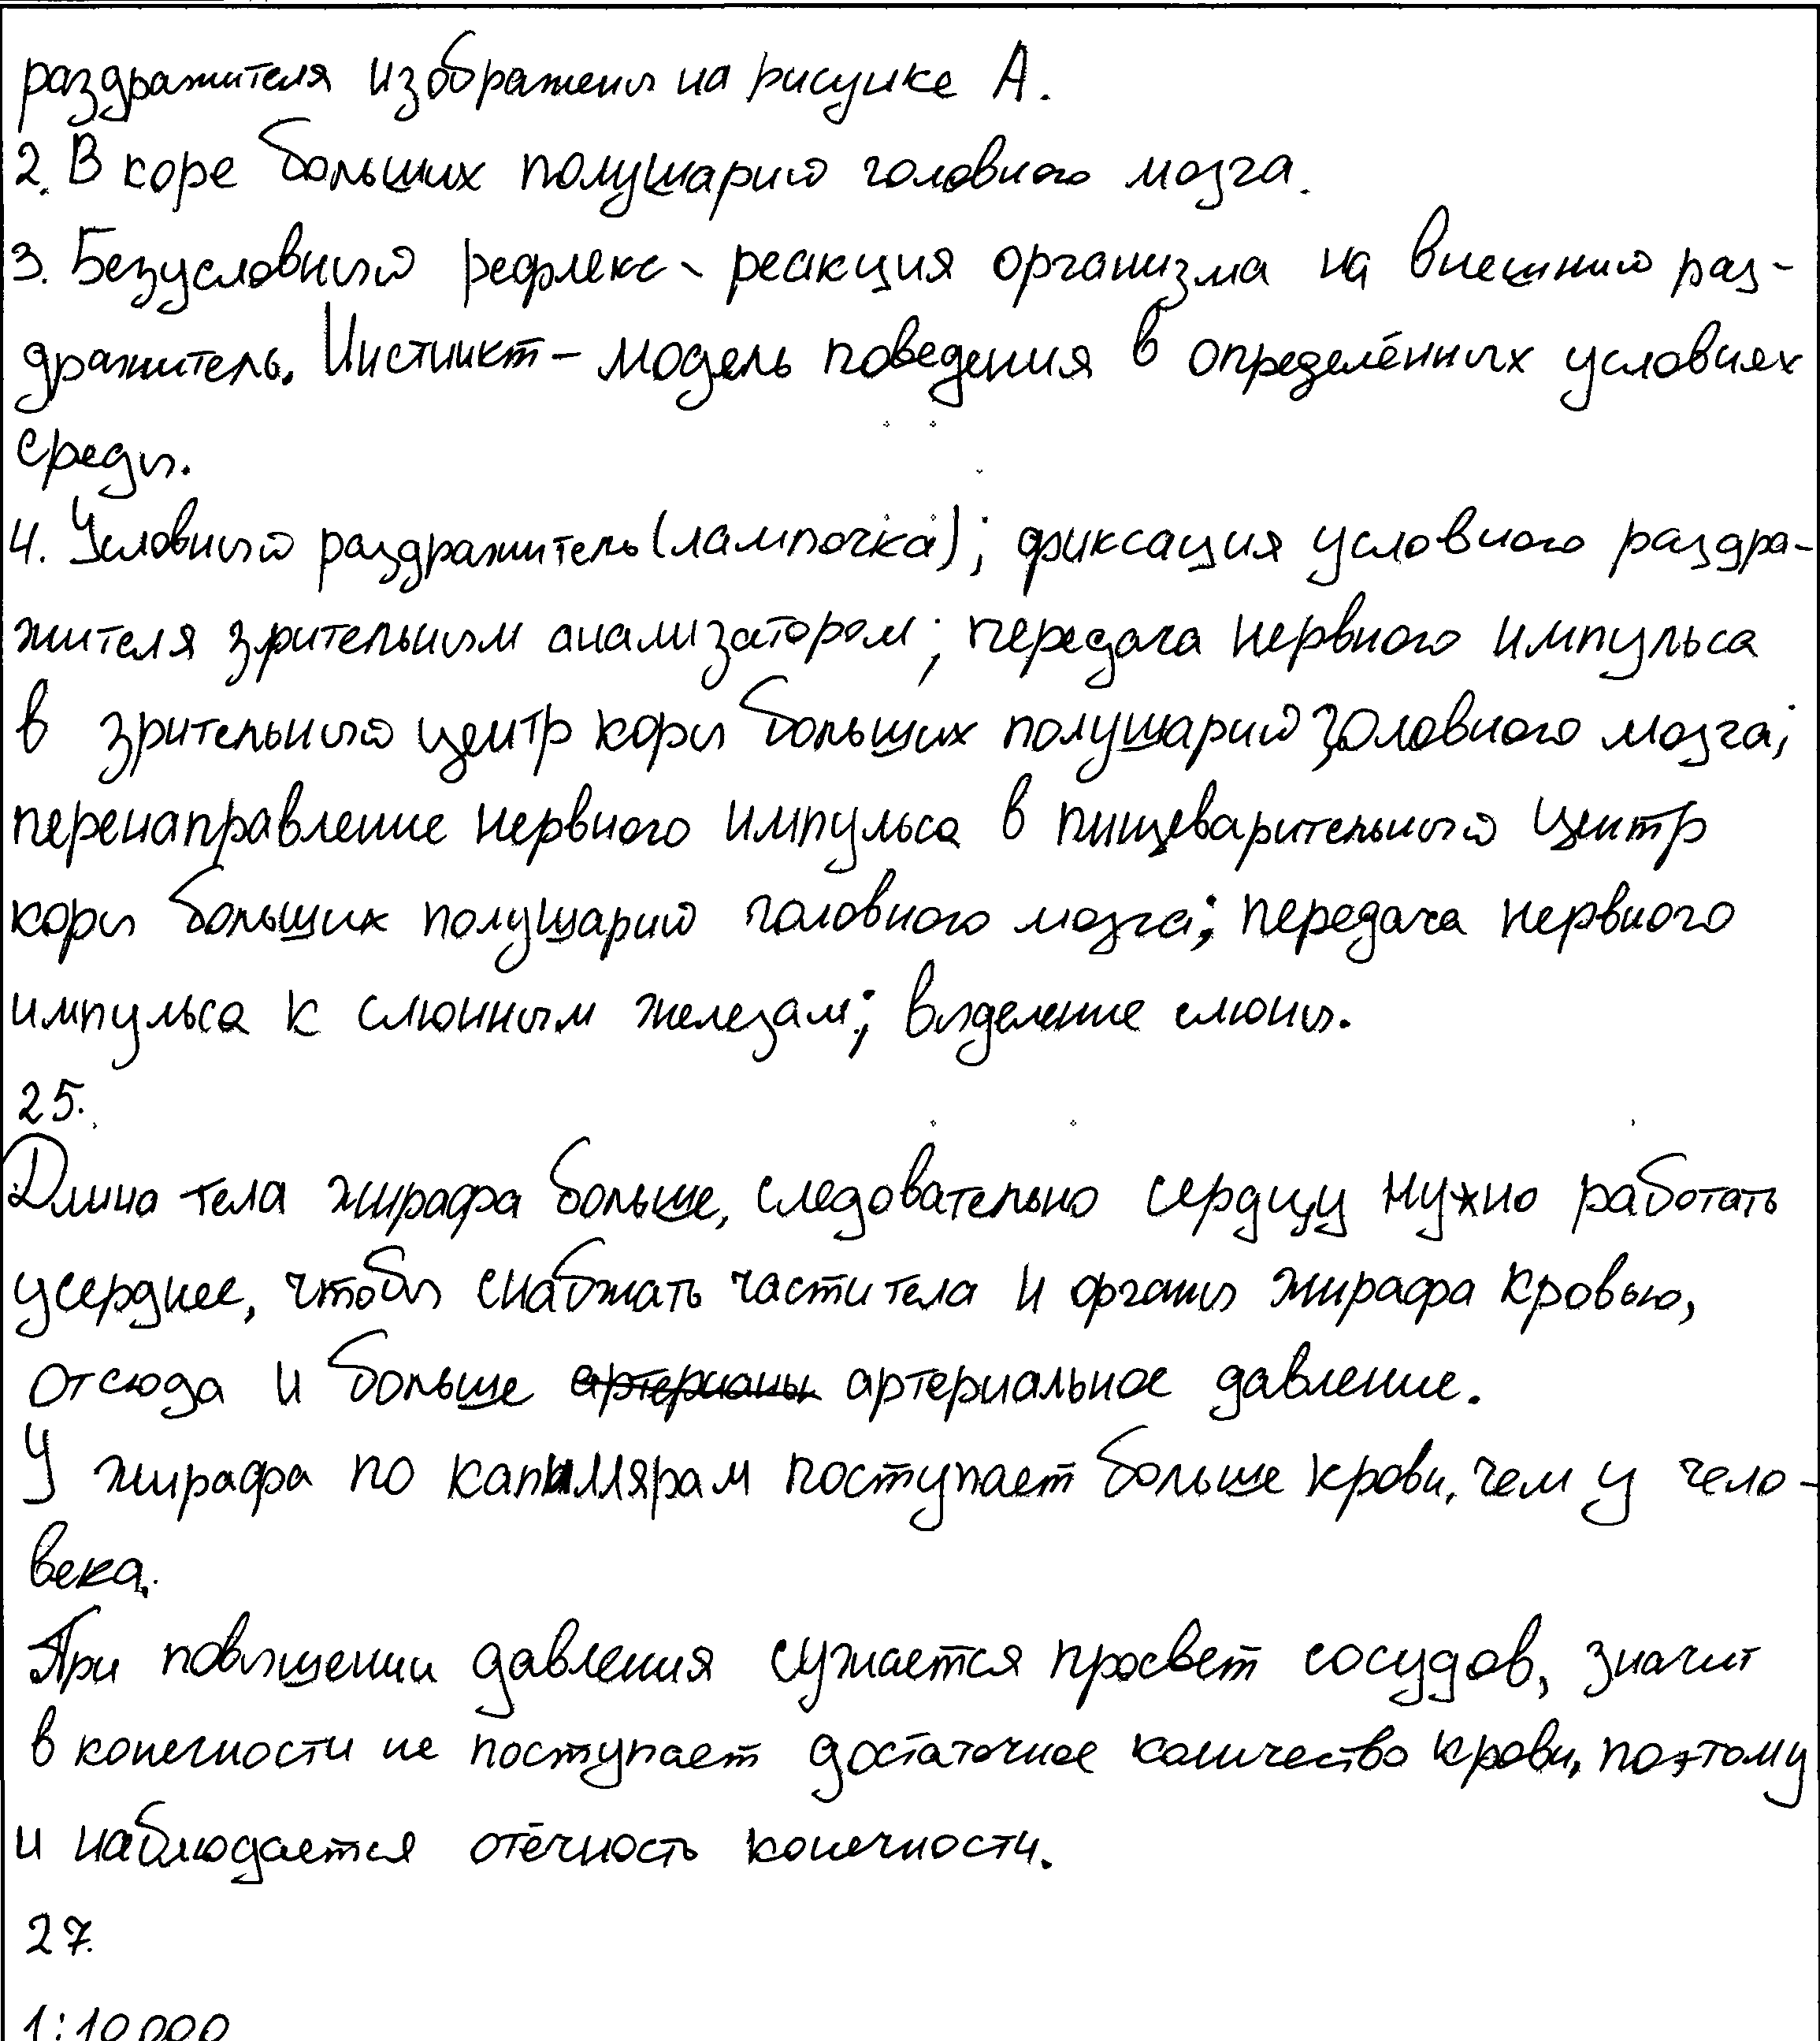 раздражителя изображены на рисунке А.
2. В коре больших полушарий головного мозга.
3. Безусловный рефлекс - реакция организма на внешний раз-
дражитель. Инстинкт - модель поведения в определённых условиях
среды.
4. Условный раздражитель (лампочка); фиксация условного раздра-
жителя зрительным анализатором; передача нервного импульса
в зрительный центр коры больших полушарий головного мозга;
перенаправление нервного импульса в пищеварительный центр
коры больших полушарий головного мозга; передача нервного
импульса к слюнным железам; выделение слюны.
25.
Длина тела жирафа больше, следовательно сердцу нужно работать
усерднее, чтобы снабжать части тела и органы жирафа кровью,
отсюда и больше артериальное давление.
У жирафа по капиллярам поступает больше крови, чем у чело-
века.
При повышении давления сужается просвет сосудов, значит
в конечности не поступает достаточное количество крови, поэтому
и наблюдается отёчность конечности.
27.
1:10 000